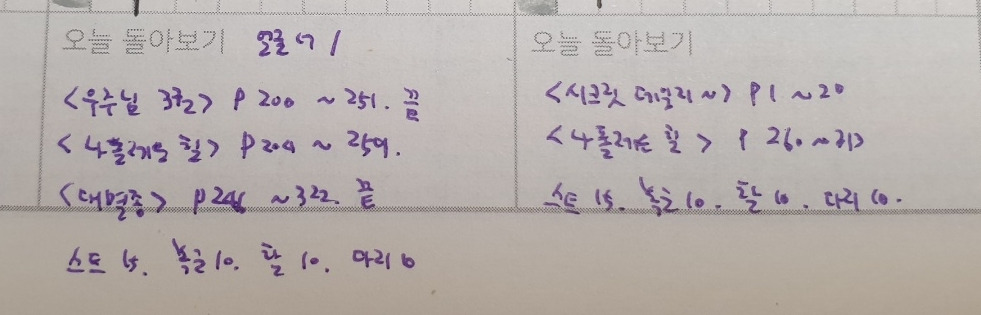 오늘 돌아보기
<우주님 3권> P 200 ~ 251. 끝
< 나 힐> P 204 ~ 259.
<대멸종> P 246 ~ 322. 끝
스트 15. 복근 10. 팔 10. 다리 10
오늘 돌아보기
<시크릿 데일리~> P 1 ~ 20
< 나 힐 > P 260 ~ 313
스트 15. 복근 10. 팔 10. 다리 10.